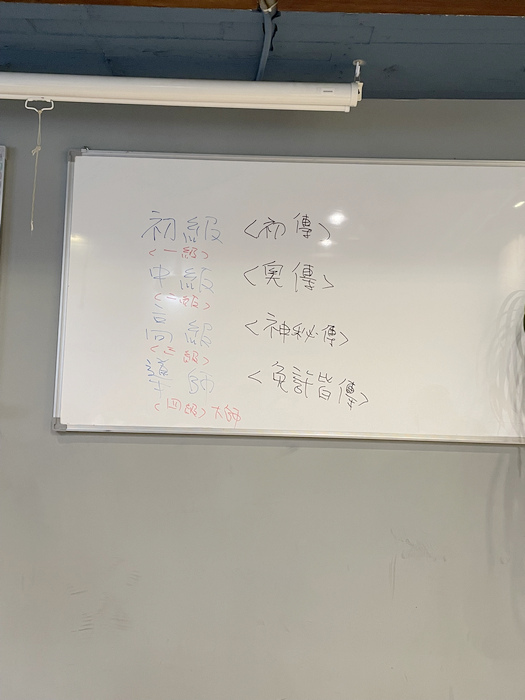 初級 <初傳>
<一級>
中級 <奧傳>
<二級>
高級 <神秘傳>
<三級>
導師 <免許皆傳>
<四級>大師